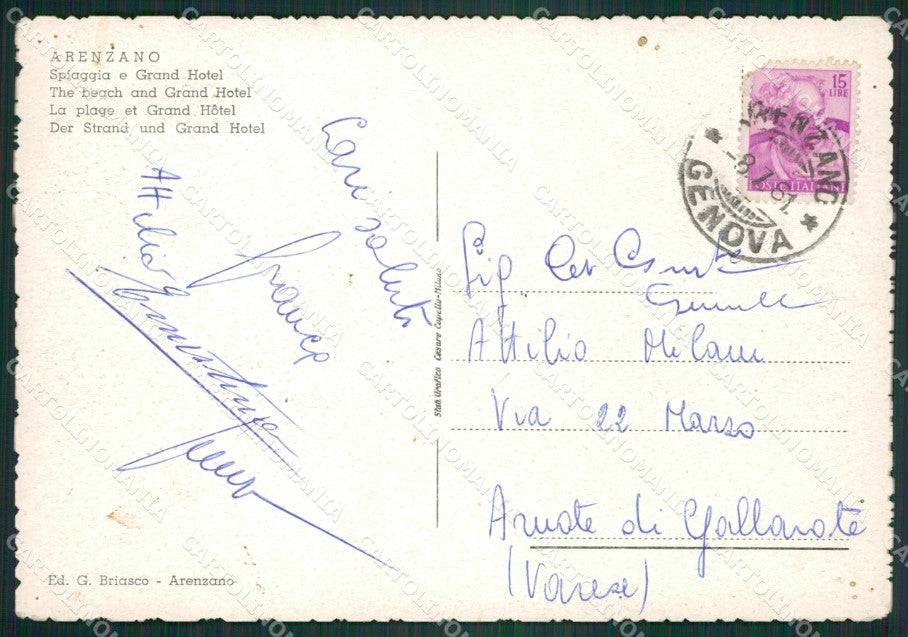 ARENZANO
Spiaggia e Grand Hotel
The beach and Grand Hotel
La plage et Grand Hôtel
Der Strand und Grand Hotel
15
LIRE
POSTE ITALIANE
ARENZANO
GENOVA
Cari saluti
Franco
Attilio
Stab. Grafico Cesare Capello-Milano
Sig
Attilio Milani
Via 22 Marzo
Arnate di Gallarate
(Varese)
Ed. G. Briasco - Arenzano
CARTOLINOMANIA